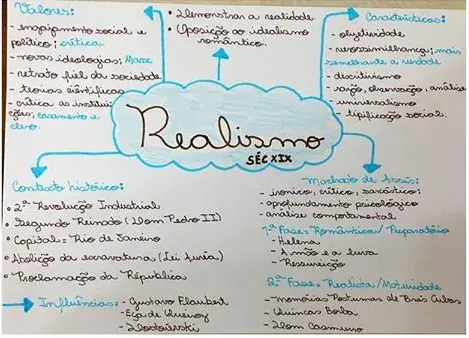 Valores:
- engajamento social e
político; críticas.
- novas ideologias; Marx
- retrato fiel da sociedade
- teorias científicas
- crítica as institui
ções; casamento e
clero.
• Demonstrar a realidade
• Oposição ao idealismo
romântico.
Características:
- objetividade
- verossimilhança; mais
semelhante a verdade
- descritivismo
- razão, observação, análise
- universalismo
- tipificação social.
Realismo
SÉC XIX
Contexto histórico:
• 2ª Revolução Industrial
• Segundo Reinado (Dom Pedro II)
• Capital = Rio de Janeiro
• Abolição da escravatura (Lei Áurea)
• Proclamação da República
Influências = - Gustavo Flaubert
- Eça de Queiroz
- Dostoiévski
Machado de Assis:
- irônico, crítico, sarcástico;
- aprofundamento psicológico
- análise comportamental
1ª Fase = Romântica / Preparatório
- Helena
- A mão e a luva
- Ressurreição
2ª Fase = Realista / Maturidade
- Memórias Póstumas de Brás Cubas
- Quincas Borba
- Dom Casmurro